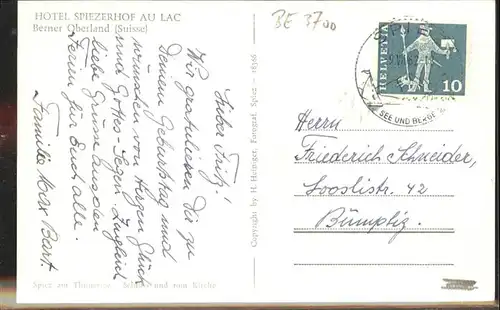 HOTEL SPIEZERHOF AU LAC
Berner Oberland (Suisse)
BE 3700
Lieber Fritz!
Wir gratulieren Dir zu
Deinem Geburtstag und
wünschen von Herzen Glück
und Gottes Segen. Zugleich
liebe Grüsse aus den
Ferien für Euch alle.
Familie Max Bart.
Spiez am Thunersee Schloss und rom. Kirche
Copyright by H. Hofstetter, Fotograf, Spiez
HELVETIA
10
SEE UND BERGE
Herrn
Friederich Schneider,
Looslistr. 42
Bümpliz.